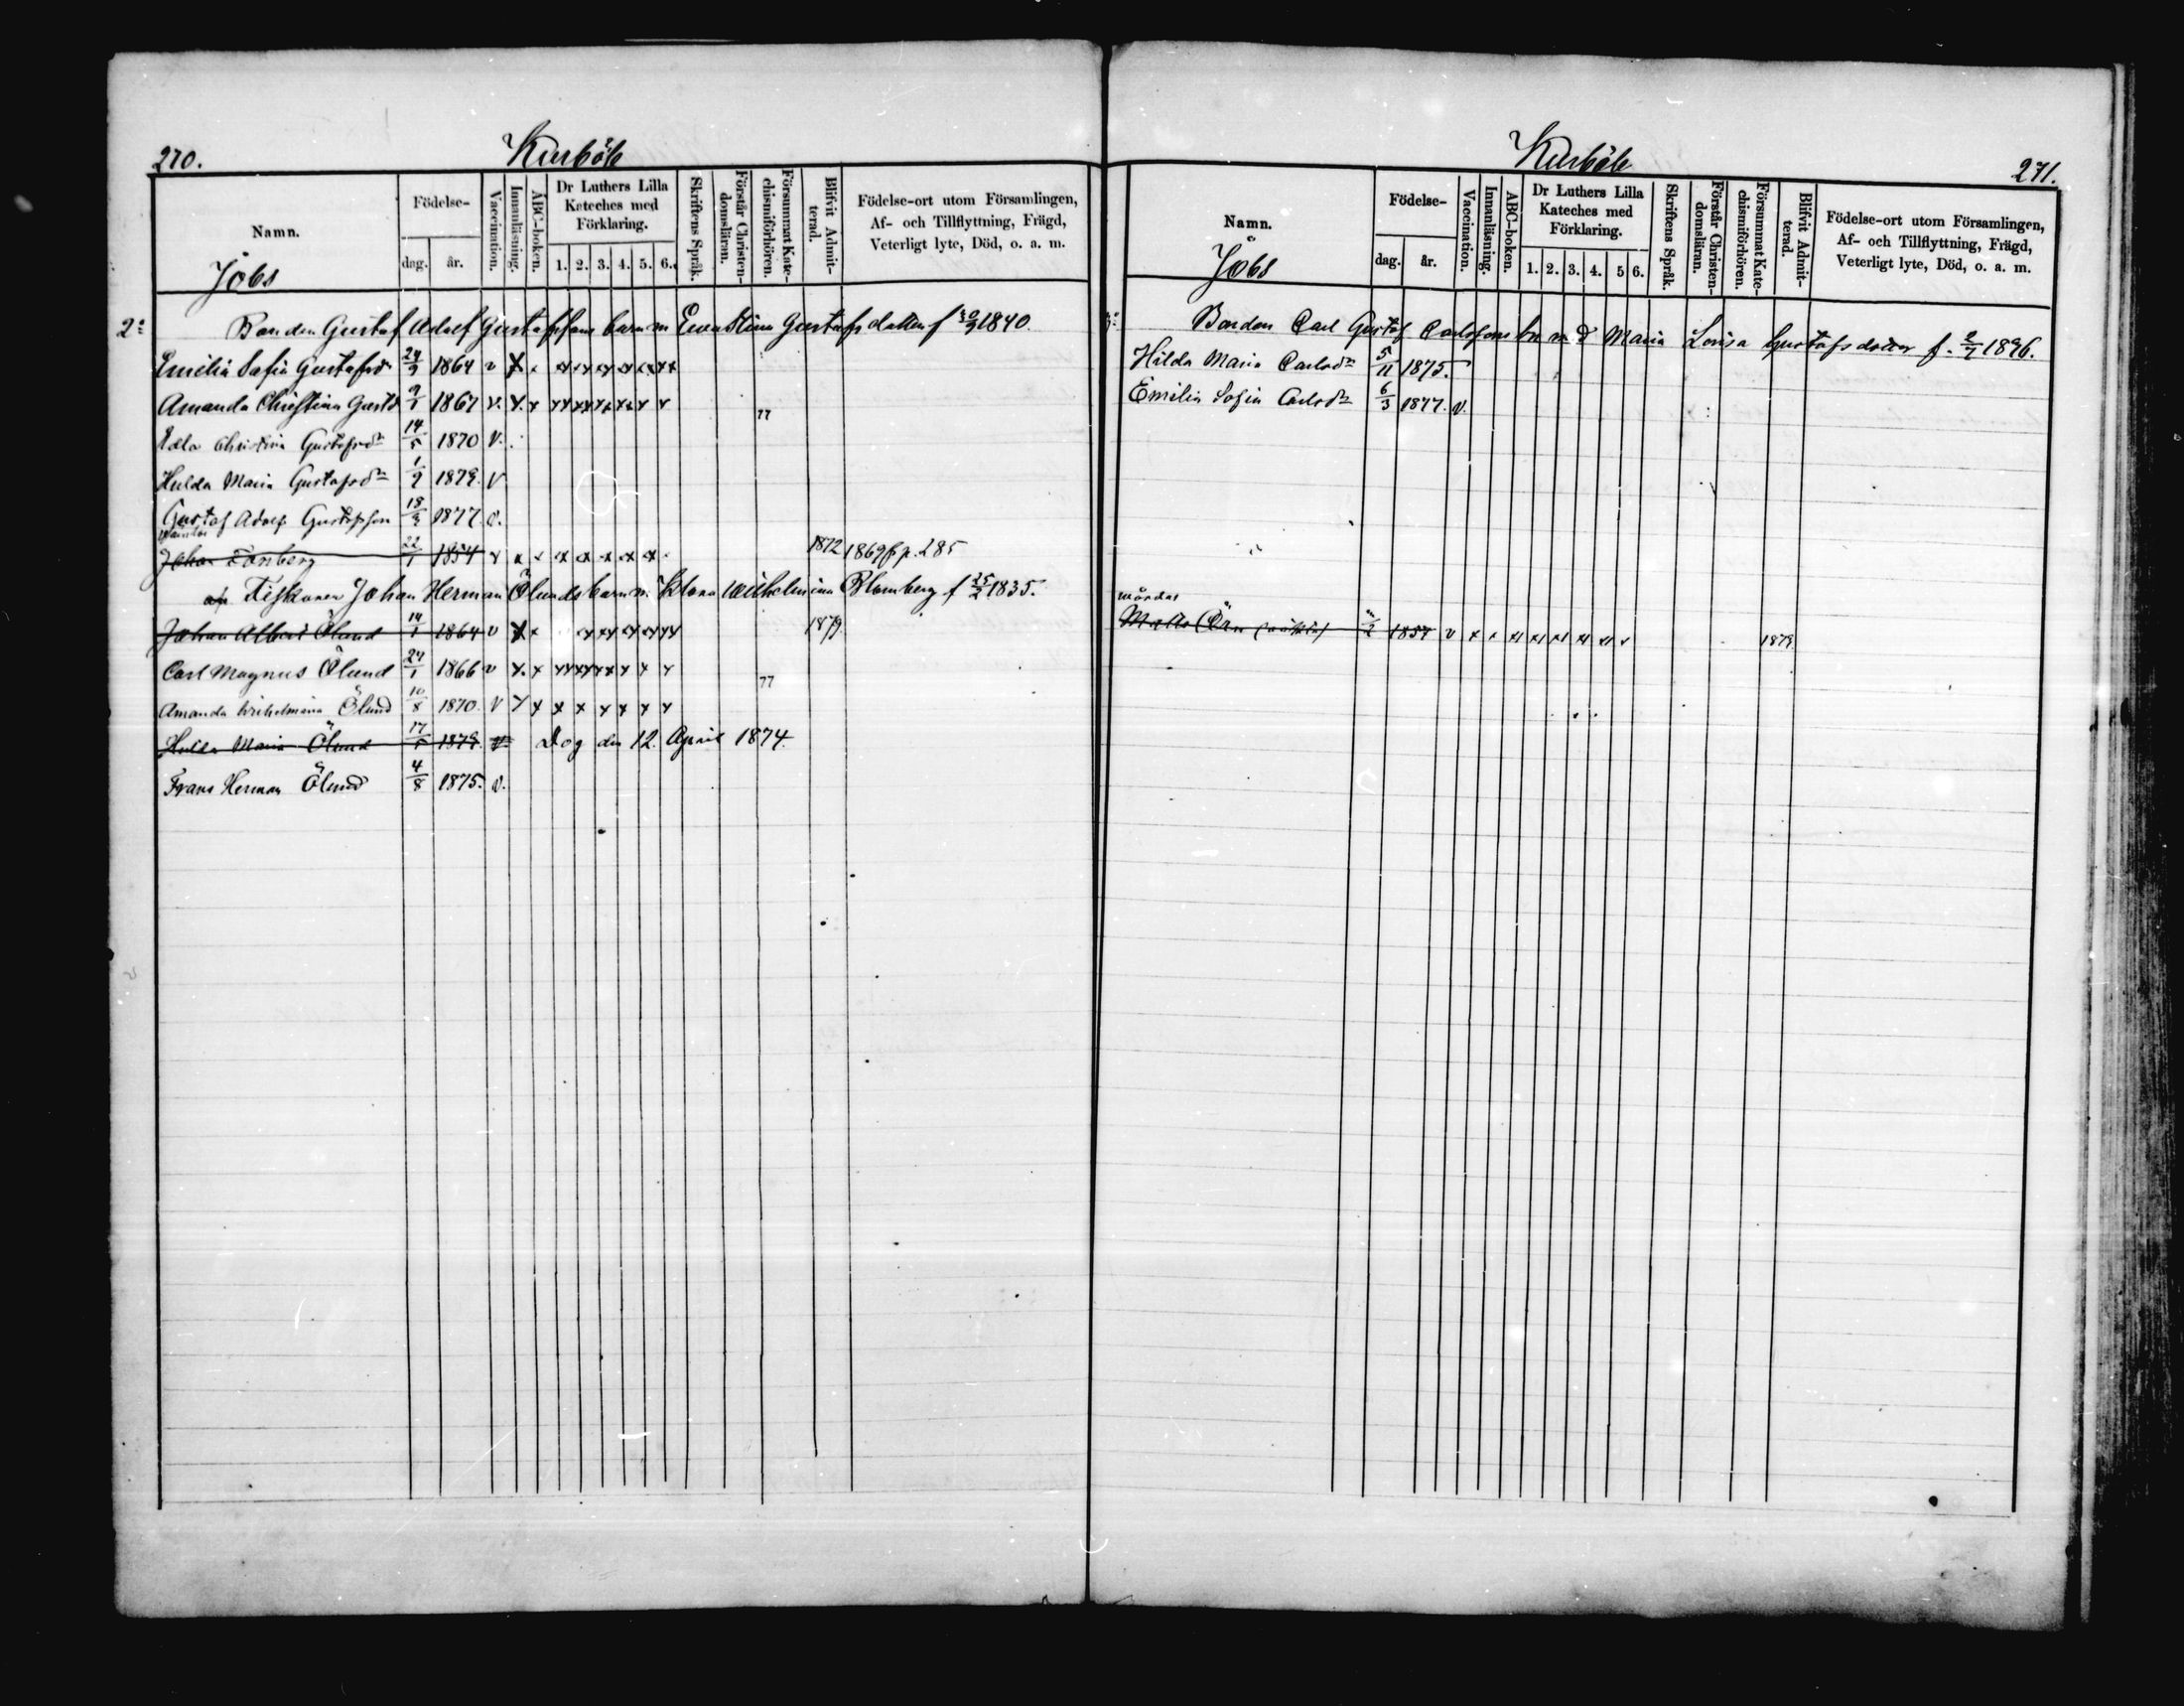 270.
Kurböle
Namn.
Födelse-
dag.
år.
Vaccination.
Innanläsning.
ABC-boken.
Dr Luthers Lilla
Kateches med
Förklaring.
1. 2. 3. 4. 5. 6.
Skriftens Språk.
Förstår Christen-
domsläran.
Försummat Kate-
chismiförhören.
Blifvit Admit-
terad.
Födelse-ort utom Församlingen,
Af- och Tillflyttning, Frägd,
Veterligt lyte, Död, o. a. m.
Jobs
2: Bonden Gustaf Adolf Gustafssons barn m Eva Stina Gustafsdotter f 1840.
Emilia Sofia Gustafsdr 24/9 1864 v x x
Amanda Christina Gustd 9/1 1867 v. x. x 77
Edla Christina Gustafsdr 14/5 1870 v.
Hulda Maria Gustafsdr 1/2 1873. v
Gustaf Adolf Gustafsson 18/3 1877. v.
Johan Tonberg 22/1 1854 v x x x x x x x 1872 1869 fr p. 285
Fiskaren Johan Herman Ölunds barn m. Klara Wilhelmina Blomberg f 25/2 1835.
Johan Albert Ölund 14/1 1864 v x x 1879.
Carl Magnus Ölund 27/1 1866 v x. x 77
Amanda Wilhelmina Ölund 10/8 1870. v x x x x x x x x
Hulda Maria Ölund 17/5 1873. v Dog den 12. April 1874.
Frans Herman Ölund 4/8 1875. v.
Kurböle
271.
Namn.
Födelse-
dag.
år.
Vaccination.
Innanläsning.
ABC-boken.
Dr Luthers Lilla
Kateches med
Förklaring.
1. 2. 3. 4. 5 6.
Skriftens Språk.
Förstår Christen-
domsläran.
Försummat Kate-
chismiförhören.
Blifvit Admit-
terad.
Födelse-ort utom Församlingen,
Af- och Tillflyttning, Frägd,
Veterligt lyte, Död, o. a. m.
Jobs
Bonden Carl Gustaf Carlssons bn m d Maria Lovisa Gustafsdotter f. 2/7 18
Hilda Maria Carlsdr 5/11 1875.
Emilia Sofia Carlsdr 6/3 1877. v.
Örn 1857 v x x 1873.